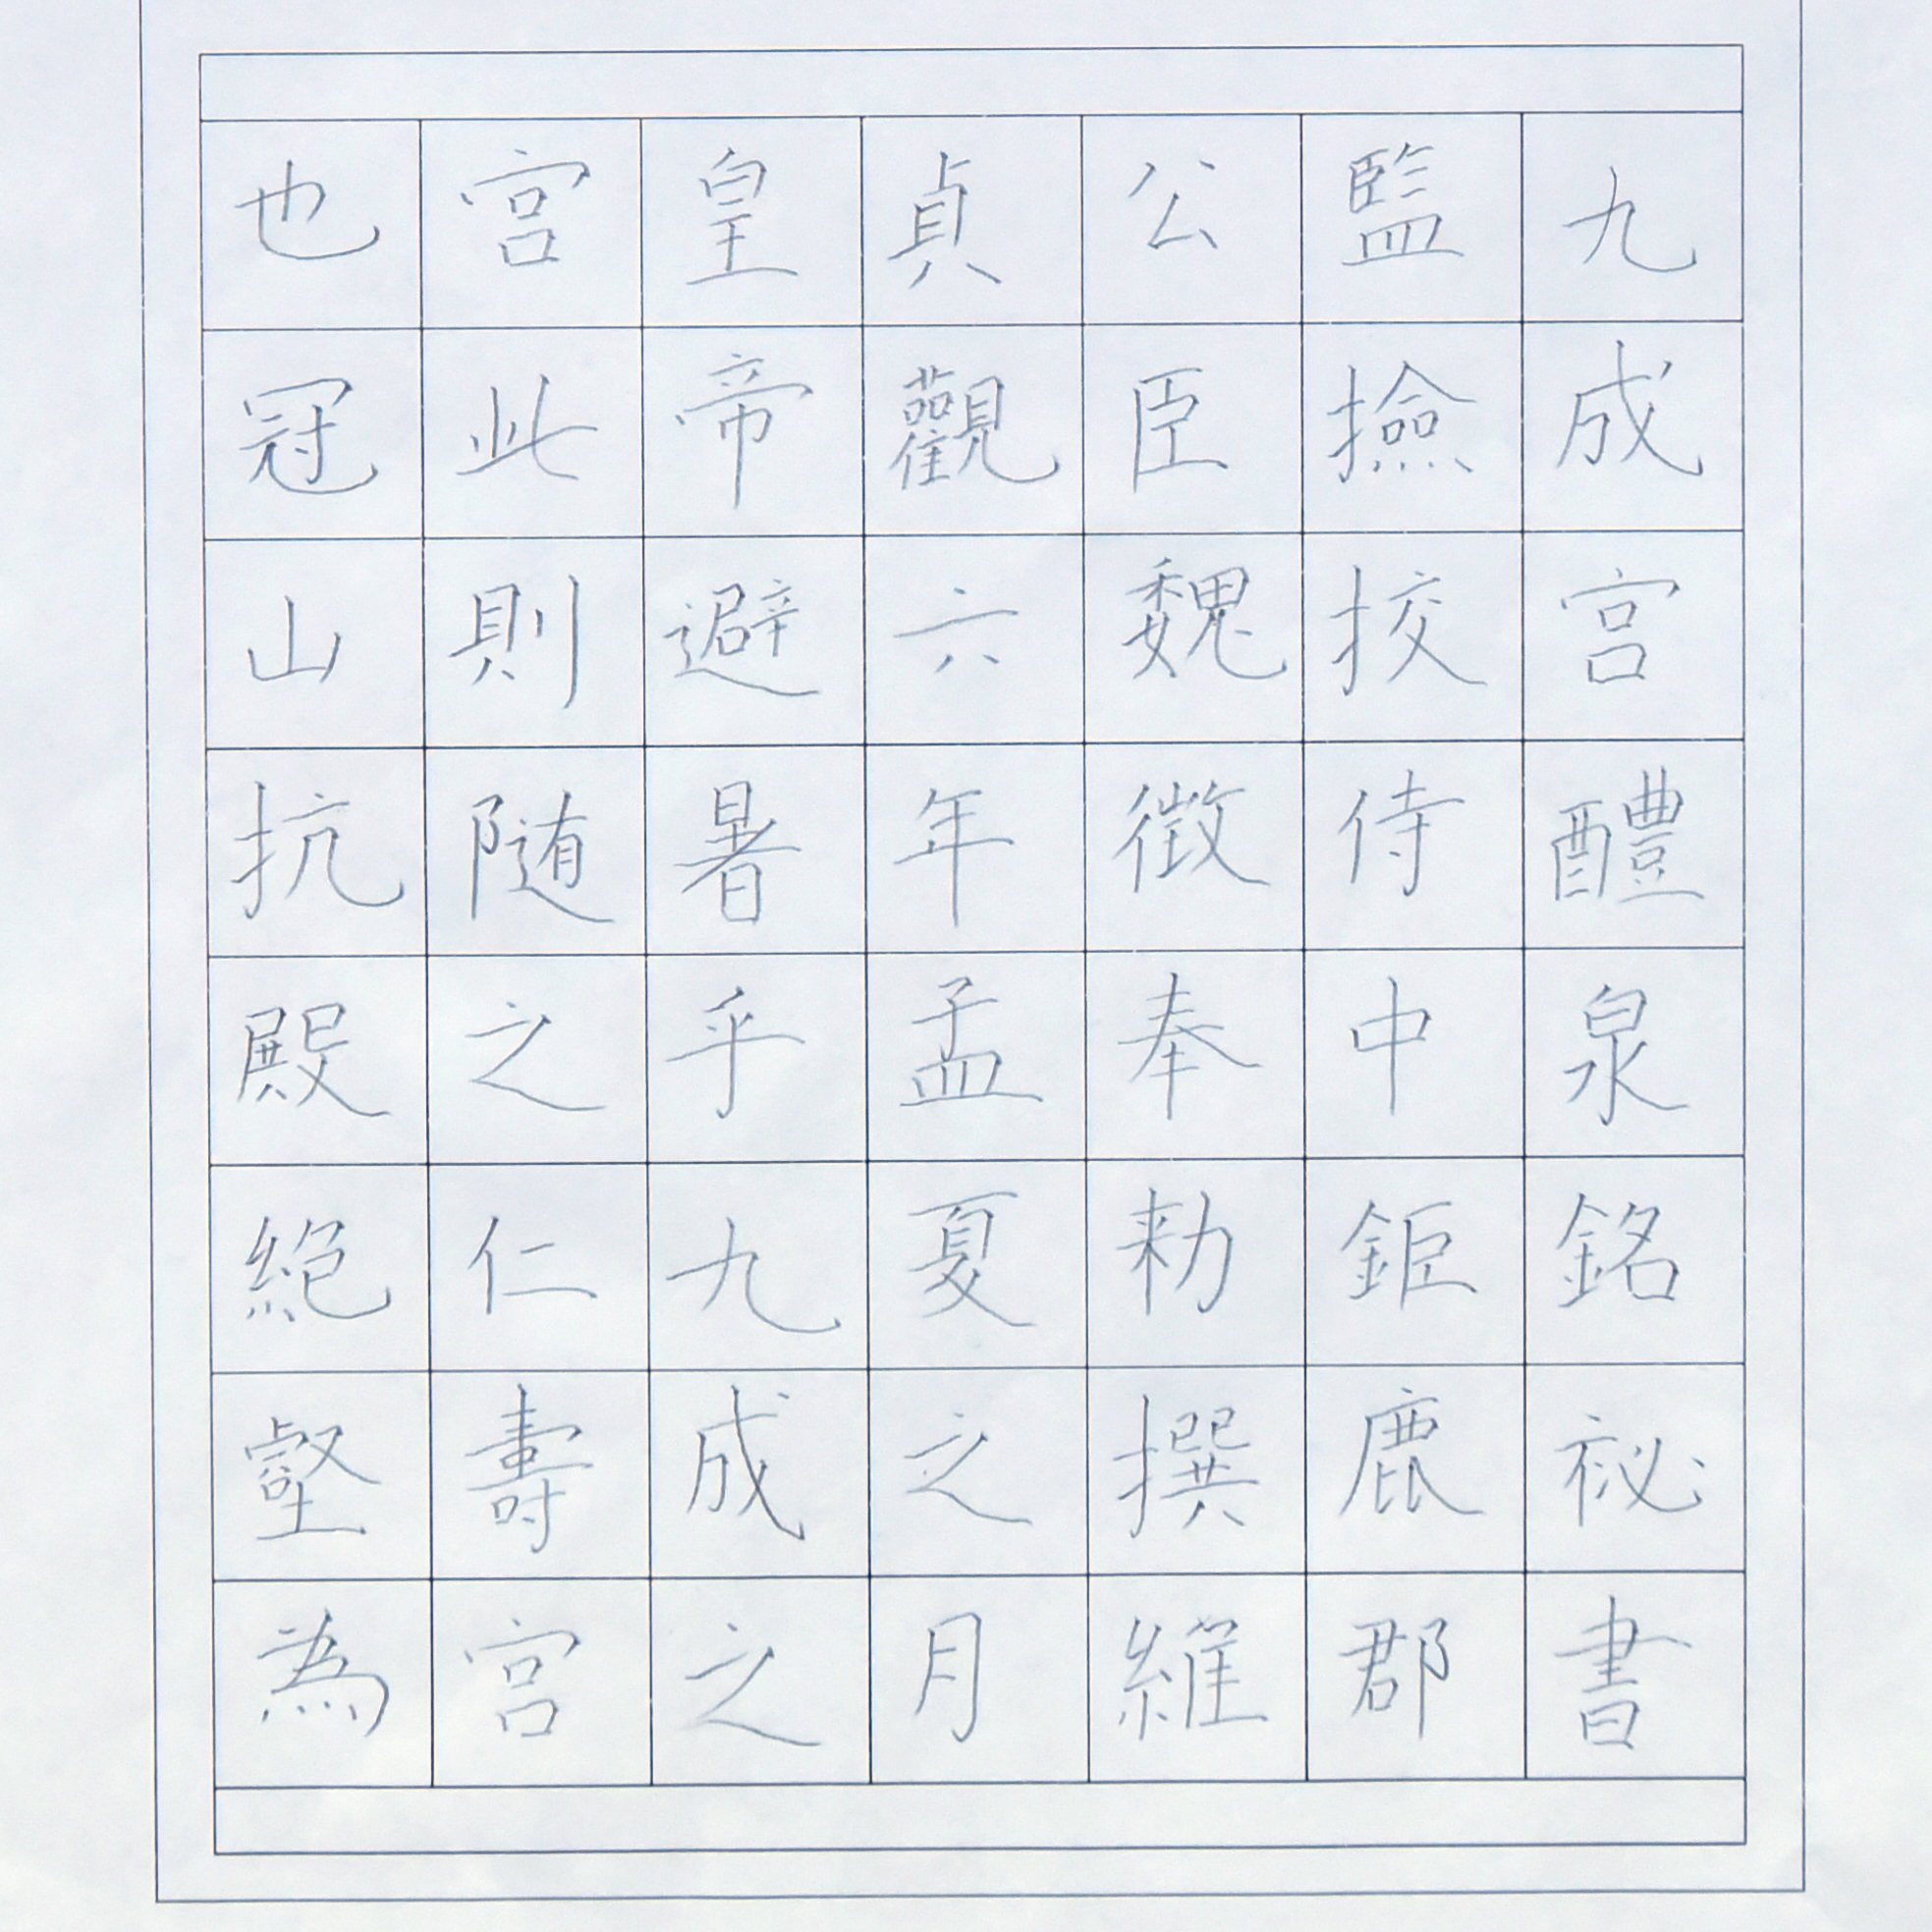 九成宫醴泉銘祕書
監撿挍侍中鉅鹿郡
公臣魏徴奉勑撰維
貞觀六年孟夏之月
皇帝避暑乎九成之
宫此則随之仁壽宫
也冠山抗殿絕壑為